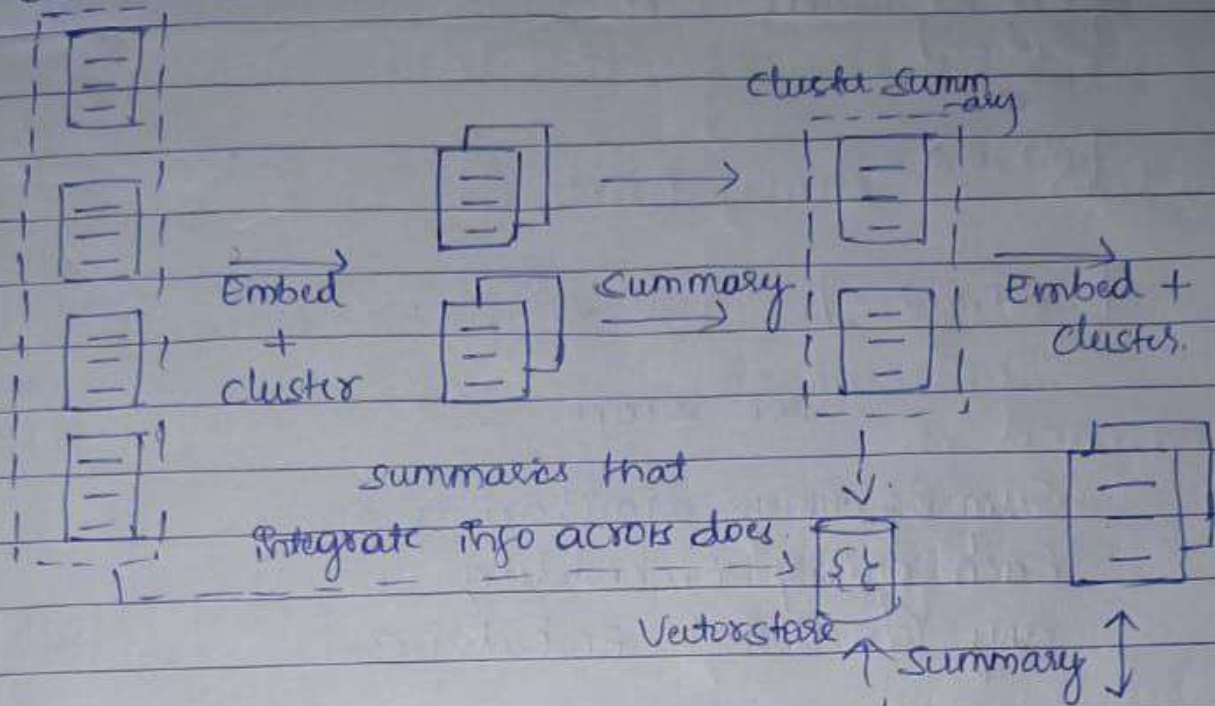 cluster summ
-ary
Embed
+
cluster
summary
Embed +
cluster.
summaries that
integrate info across docs.
Vectorstore
summary